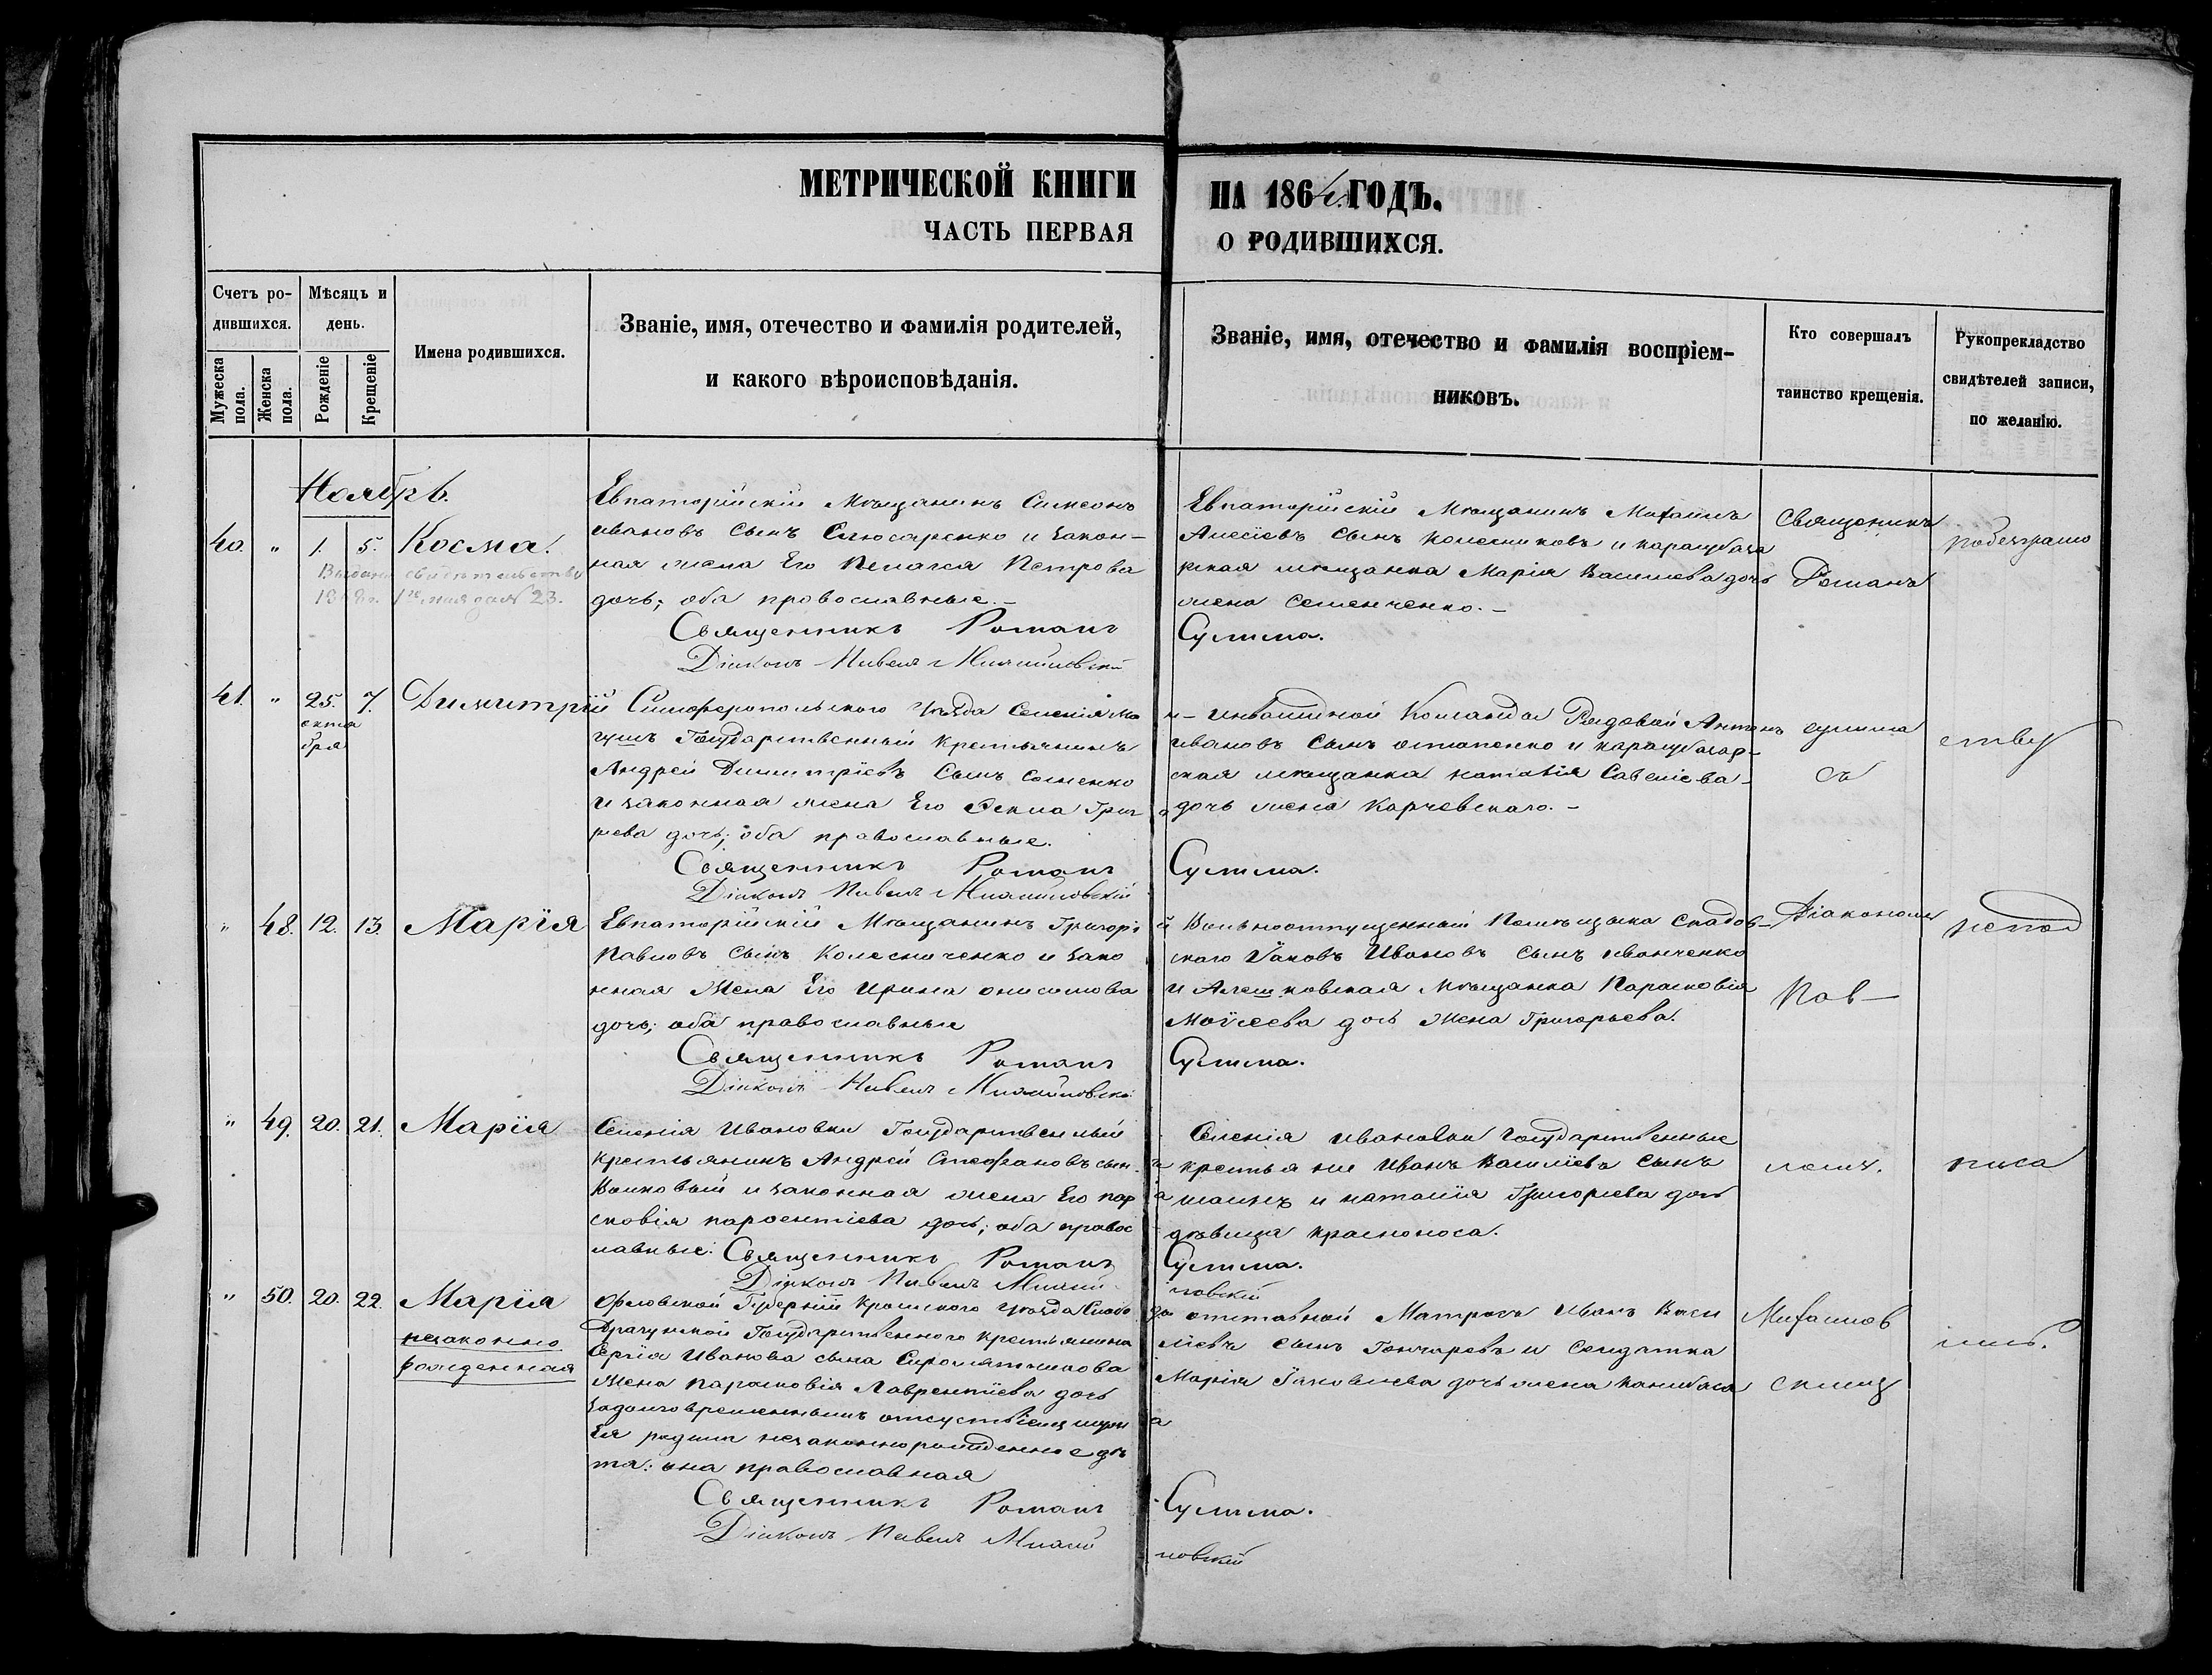 МЕТРИЧЕСКОЙ КНИГИ
ЧАСТЬ ПЕРВАЯ
НА 1864 ГОДЪ.
О РОДИВШИХСЯ.
Счетъ ро-
дившихся.
Мужеска
пола.
Женска
пола.
Мѣсяць и
день.
Рожденіе
Крещеніе
Имена родившихся.
Званіе, имя, отечество и фамилія родителей,
и какого вѣроисповѣданія.
Званіе, имя, отечество и фамилія воспріем-
никовъ.
Кто совершалъ
таинство крещенія.
Рукопрекладство
свидѣтелей записи,
по желанію.
Ноябрь.
40. " 1. 5. Косма.
Евпаторійскій Мѣщанинъ Симеонъ
Ивановъ сынъ Слюсаренко и закон-
ная жена Его Пелагея Петрова
дочь; оба провославные.-
Священникъ Романъ
Діаконъ Павелъ
Евпаторійскій Мѣщанинъ Михаилъ
Алесіевъ сынъ Колесниковъ и карасубаза
рская мѣщанка Марія Василиева дочь
жена Семенченко.-
Сулима.
Священникъ
Романъ
41. " 25. 7. Димитрій
октя
бря
Симферопольского Уѣзда Селенія Ма
Государственный Крестьянинъ
Андрей Димитріевъ Сынъ
и законная жена Его Григ
риева дочь; оба православные.
Священникъ Романъ
Діаконъ Павелъ
Инвалидной Команды Рядовой Антонъ
Ивановъ Сынъ и карасубазар-
ская мѣщанка наталія Савеліева-
дочь жена Карчевскаго.-
Сулима.
сулима
съ
ству
" 48. 12. 13. Марїя
Евпаторійскій Мѣщанинъ Григорі
Павловъ сынъ Колесниченко и зако
нная Жена Его Ирина Онисимова
дочь; оба православные
Священникъ Романъ
Діаконъ Павелъ
й Вольноотпущенный Помѣщика Скадов-
скаго Їаковъ Ивановъ сынъ Иванченко
и Алешковская Мѣщанка Парасковія
Моїсеева дочь Жена Григорьева.
Сулима.
Діакономъ
Пав-
непод
" 49. 20. 21. Марїя
Селенія Ивановки Государственный
Крестьянинъ Андрей Стефановъ сын-
Волковый и законная жена Его пар
сковія дочь; оба правос
лавные: Священникъ Романъ
Діаконъ Павелъ
Селенія Ивановки Государственные
крестьяне Иванъ Василіевъ Сынъ
и наталїя Григориева дочь
дѣвица красноноса.
Сулима.
ловскій
ломъ.
писа
" 50. 20. 22. Марїя
незаконно
рожденная
Орловской Губерніи Уѣзда
Государственного крестьянина
Сергія Иванова сына Сыромятникова
Жена парасковія Лаврентїева дочь
отсутствіемъ мужа
Ея родила незаконнорожденное дѣ
тя: она православная
Священникъ Романъ
Діаконъ Павелъ
отставной Матросъ Иванъ Васи
ліевъ сынъ Гончаревъ и Солдатка
Марія Їаковлева дочь жена
а
Сулима.
ловскій
Михаилов
скимъ